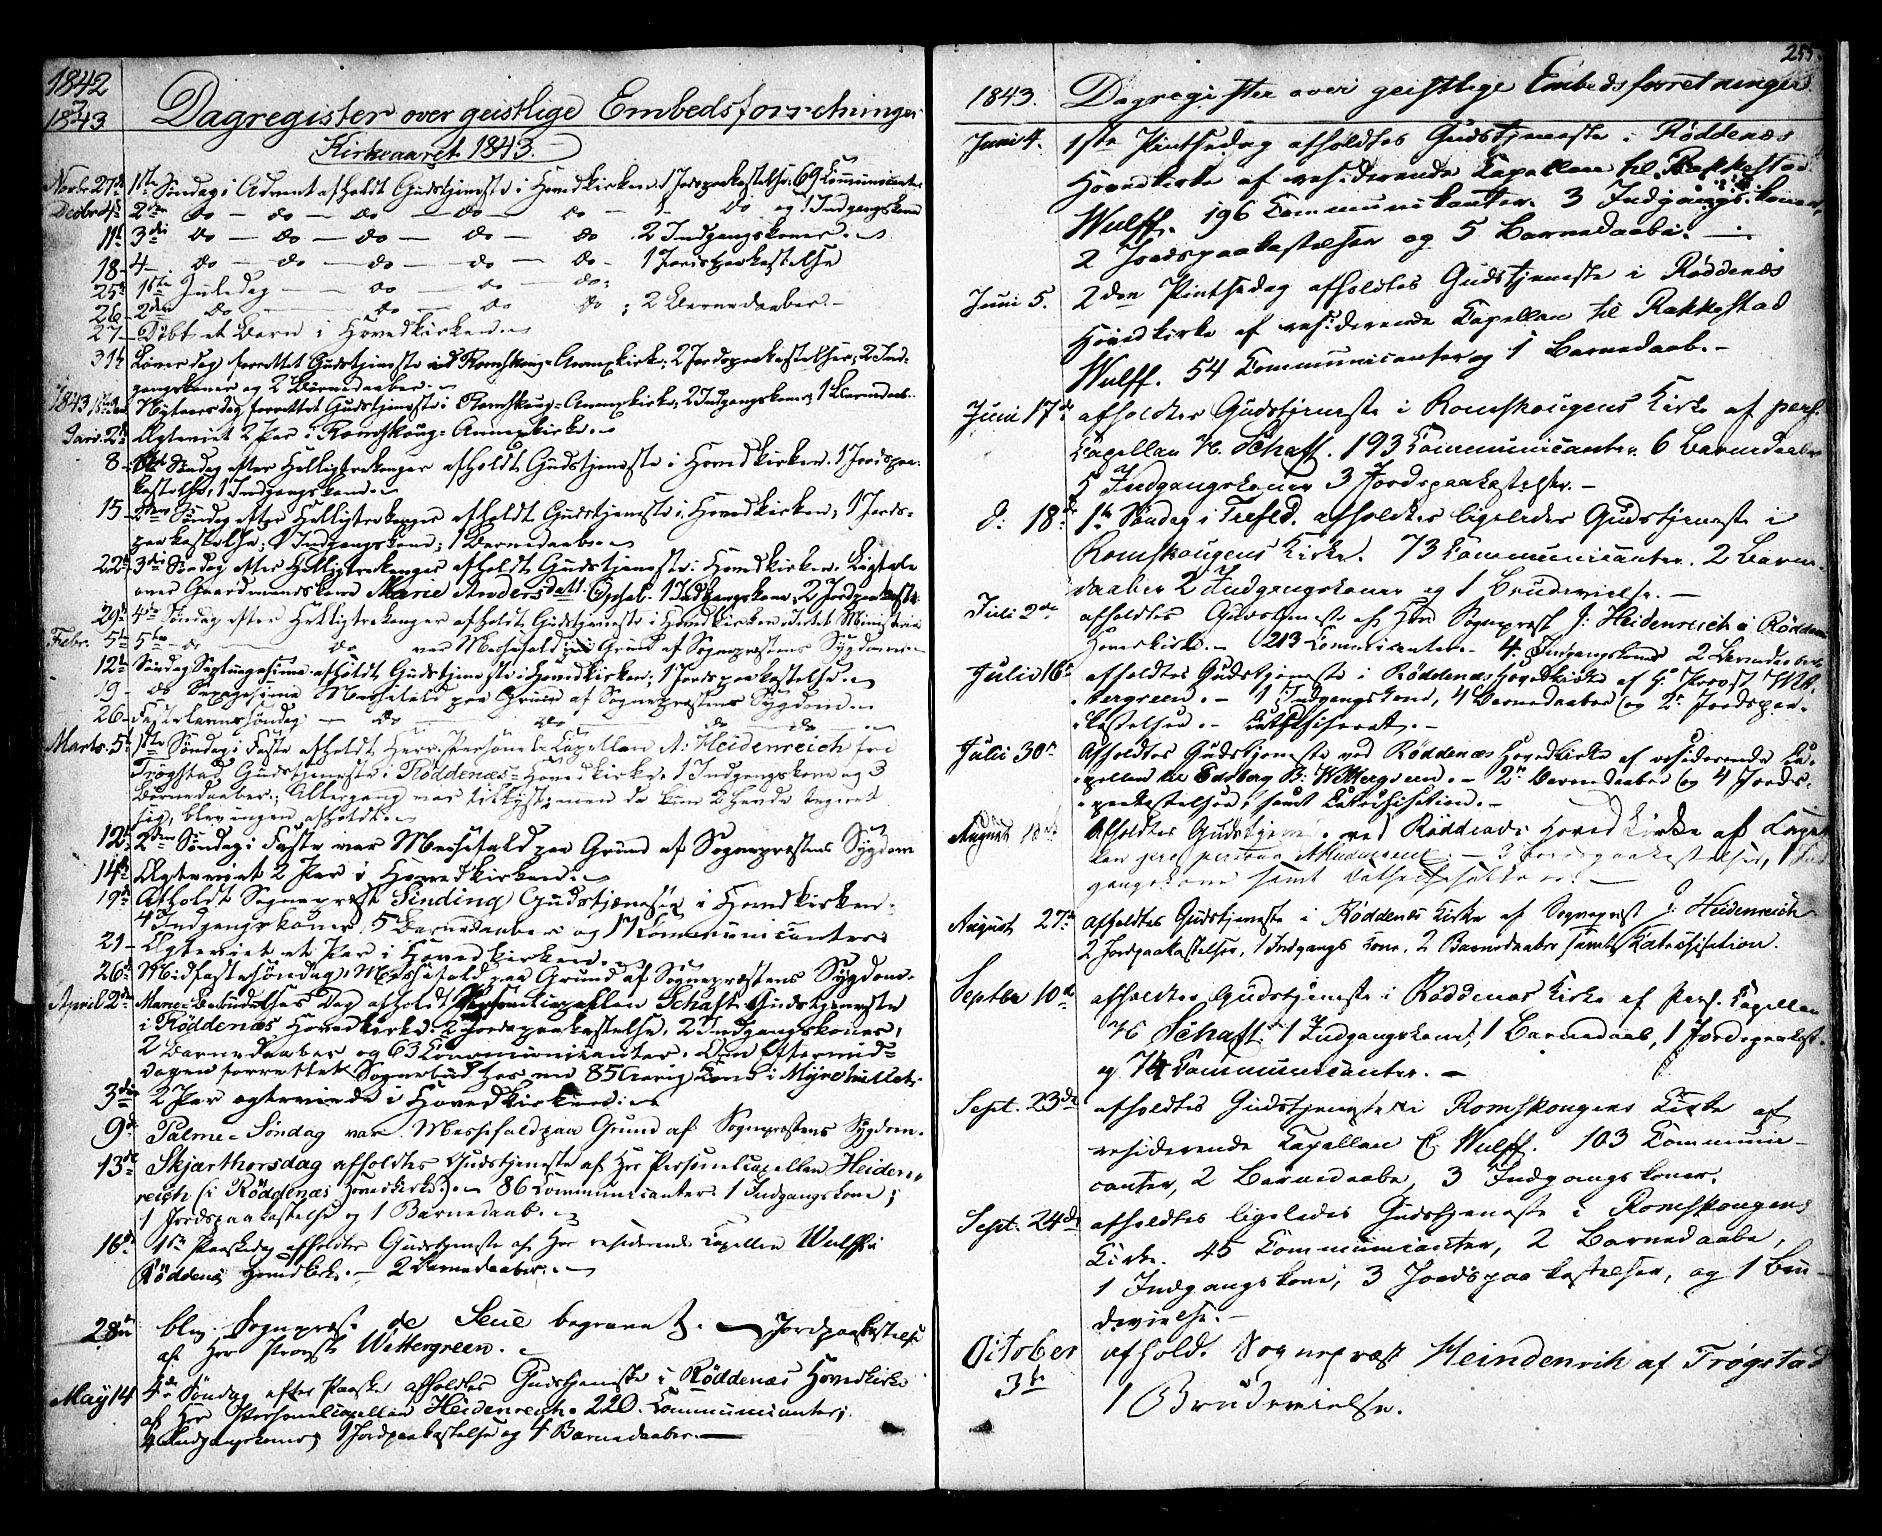 1842
1843.
Dagregister over geistlige Embedsforretninger
Kirkeaaret 1843.
Novbr 27de 1ste Søndag i Advent afholdt Gudstjeneste i Hovedkirken. 1 Jordpaakastelse. 69 Communicanter
Decbr 4de 2den do — do — do — do — do 1 do og 1 Indgangskone
11te 3die do — do — do — do — do 2 Indgangskoner.
18 - 4 - do — do — do — do — do 1 Jordpaakastelse
25de 1ste Juledag — do — do — do;
26 - 2den do — do — do — do; 2 Barnedaaber. -
27 - Døbt et Barn i Hovedkirken.
31te Løverdag forrettet Gudstjeneste ved Romskoug-Annexkirke; 2 Jordspaakastelser; 2 Ind-
gangskoner og 2 Barnedaaber.
1843 Nytaarsdag forrettet Gudstjeneste i Romskoug-Annexkirke; 2 Indgangskoner; 1 Barnedaab.
Janr. 2de Ægteviet 2 Par i Romskoug-Annexkirke.
8 - 1ste Søndag efter Helligtrekonger afholdt Gudstjeneste i Hovedkirken. 1 Jordspaa-
kastelse; 1 Indgangskone.
15 - 2den Søndag efter Helligtrekonger afholdt Gudstjeneste i Hovedkirken; 1 Jords-
paakastelse; 1 Indgangskone; 1 Barnedaab.
22de 3die Søndag efter Helligtrekonger afholdt Gudstjeneste i Hovedkirken. Ligtale
over Gaardmandskone Marie Andersdatt. Opsal. 1 Indgangskone. 2 Jordpaakastelser
29de 4de Søndag efter Helligtrekonger afholdt Gudstjeneste i Hovedkirken
Febr. 5te 5te — do — do var Messefald paa Grund af Sognepræstens Sygdom
12te Søndag Septuagesima afholdt Gudstjeneste i Hovedkirken; 1 Jordspaakastelse.
19 - do Sexagesima Messefald paa Grund af Sognepræstens Sygdom
26 - Fastelavnssøndag — do — do — do — do —
Marts. 5te 1ste Søndag i Faste afholdt Herr Personel-Capellan A: Heidenreich fri
Trøgstad Gudstjeneste i Røddenæs-Hovedkirke. 1 Indgangskone og 3
Barnedaaber; Altergang var tillyst; men da kun 2 havde tegnet
sig, blev ingen afholdt.
12te 2den Søndag i Faste var Messefald paa Grund af Sognepræstens Sygdom
14de Ægteviet 2 Par i Hovedkirken.
19de Afholdt Sognepræst Sinding Gudstjeneste i Hovedkirken.
4 Indgangskoner, 5 Barnedaaber og 17 Communicanter
21 - Ægteviet et Par i Hovedkirken.
26de Midfastesøndag, Messefald paa Grund af Sognepræstens Sygdom.
April 2de Mariæ-Bebudelses Dag afholdt Personelcapellan Schaft Gudstjeneste
i Røddenæs Hovedkirke. 2 Jordspaakastelse, 2 Indgangskoner,
2 Barnedaaber og 63 Communicanter. Om Eftermid-
dagen forrettet Sognebud hos en 85aarig Kone i Myrehullet.
3die 2 Par ægteviede i Hovedkirken
9de Palme-Søndag var Messefald paa Grund af Sognepræstens Sygdom.
13de Skjærthorsdag afholdtes Gudstjeneste af Hr Personelcapellan Heiden-
reich (i Røddenæs Hovedkirke). 86 Communicanter. 1 Indgangskone;
1 Jordspaakastelse og 1 Barnedaab.
16de 1ste Paaskedag afholdtes Gudstjeneste af Hr residerende Capellan Wulff i
Røddenæs Hovedkirke. — 2 Barnedaaber.
28de blev Sognepræst de Seue begravet. — Jordpaakastelse
af Hr Provst Wettergreen.
May 14 4de Søndag efter Paaske afholdtes Gudstjeneste i Røddenæs Hovedkirke
af Hr Personelcapellan Heidenreich. 220. Communicanter;
4 Indgangskoner; 1 Jordpaakastelse og 4 Barnedaaber. —
255.
1843. Dagregister over geistlige Embedsforretninger
Juni 4. 1ste Pintsedag afholdtes Gudstjeneste i Røddenæs
Hovedkirke af residerende Capellan til Rakkestad
Wulff. 196 Communikanter. 3 Indgangskoner,
2 Jordspaakastelser og 5 Barnedaabe.
Juni 5. 2den Pintsedag afholdtes Gudstjeneste i Røddenæs
Hovedkirke af residerende Capellan til Rakkestad
Wulff. 54 Communicanter og 1 Barnedaab. -
Juni 17de afholdtes Gudstjeneste i Romskougens Kirke af pers.
Capellan H. Schaft. 193 Communicanter. 6 Barnedaaber
5 Indgangskoner 3 Jordspaakastelser. -
d: 18de 1ste Søndag i Trefld. afholdtes ligeledes Gudstjeneste i
Romskougens Kirke. 73 Communicanter. 2 Barne-
daaber 2 Indgangskoner og 1 Brudevielse. -
Juli 2de afholdtes Gudstjeneste af Hr Sognepræst J: Heidenreich i Røddenæs
Hovedkirke. - 213 Communicanter. 4 Indgangskoner 2 Barnedaaber
Julie 16de afholdtes Gudstjeneste i Røddenæs Hovedkirke af Hr Provst Wet-
tergreen. - 1 Indgangskone, 4 Barnedaaber og 2 Jordspaa-
kastelser. - Catechiseret. -
Juli 30te Afholdtes Gudstjeneste ved Røddenæs Hovedkirke af residerende Ca-
pellan til Eidsberg B: Wettergreen. - 2 Barnedaaber og 4 Jords-
paakastelser; samt Catechisation. -
August 13de Afholdtes Gudstjeneste ved Røddenæs Hoved Kirke af Capel
3 Jordspaakastelser, 1 Ind
gangskone samt
August 27de afholdtes Gudstjeneste i Røddenæs Kirke af Sognepræst J: Heidenreich
2 Jordpaakastelser, 1 Indgangs Kone, 2 Barnedaaber samt Katechisation.
Septbr 10de afholdtes Gudstjeneste i Røddenæs Kirke af Pers. Capellan
H. Schaft. 1 Indgangskone, 1 Barnedaab, 1 Jordspaakast.
og 74 Communicanter. -
Sept. 23de afholdtes Gudstjeneste i Romskougens Kirke af
residerende Capellan C. Wulff. 103 Communi-
canter, 2 Barnedaabe, 3 Indgangskoner.
Sept. 24de afholdtes ligeledes Gudstjeneste i Romskougens
Kirke. 45 Communicanter, 2 Barnedaabe,
1 Indgangskone, 3 Jordspaakastelser, og 1 Bru-
devielse. -
October afhold. Sognepræst Heindenrik af Trøgstad
3de 1 Brudevielse.